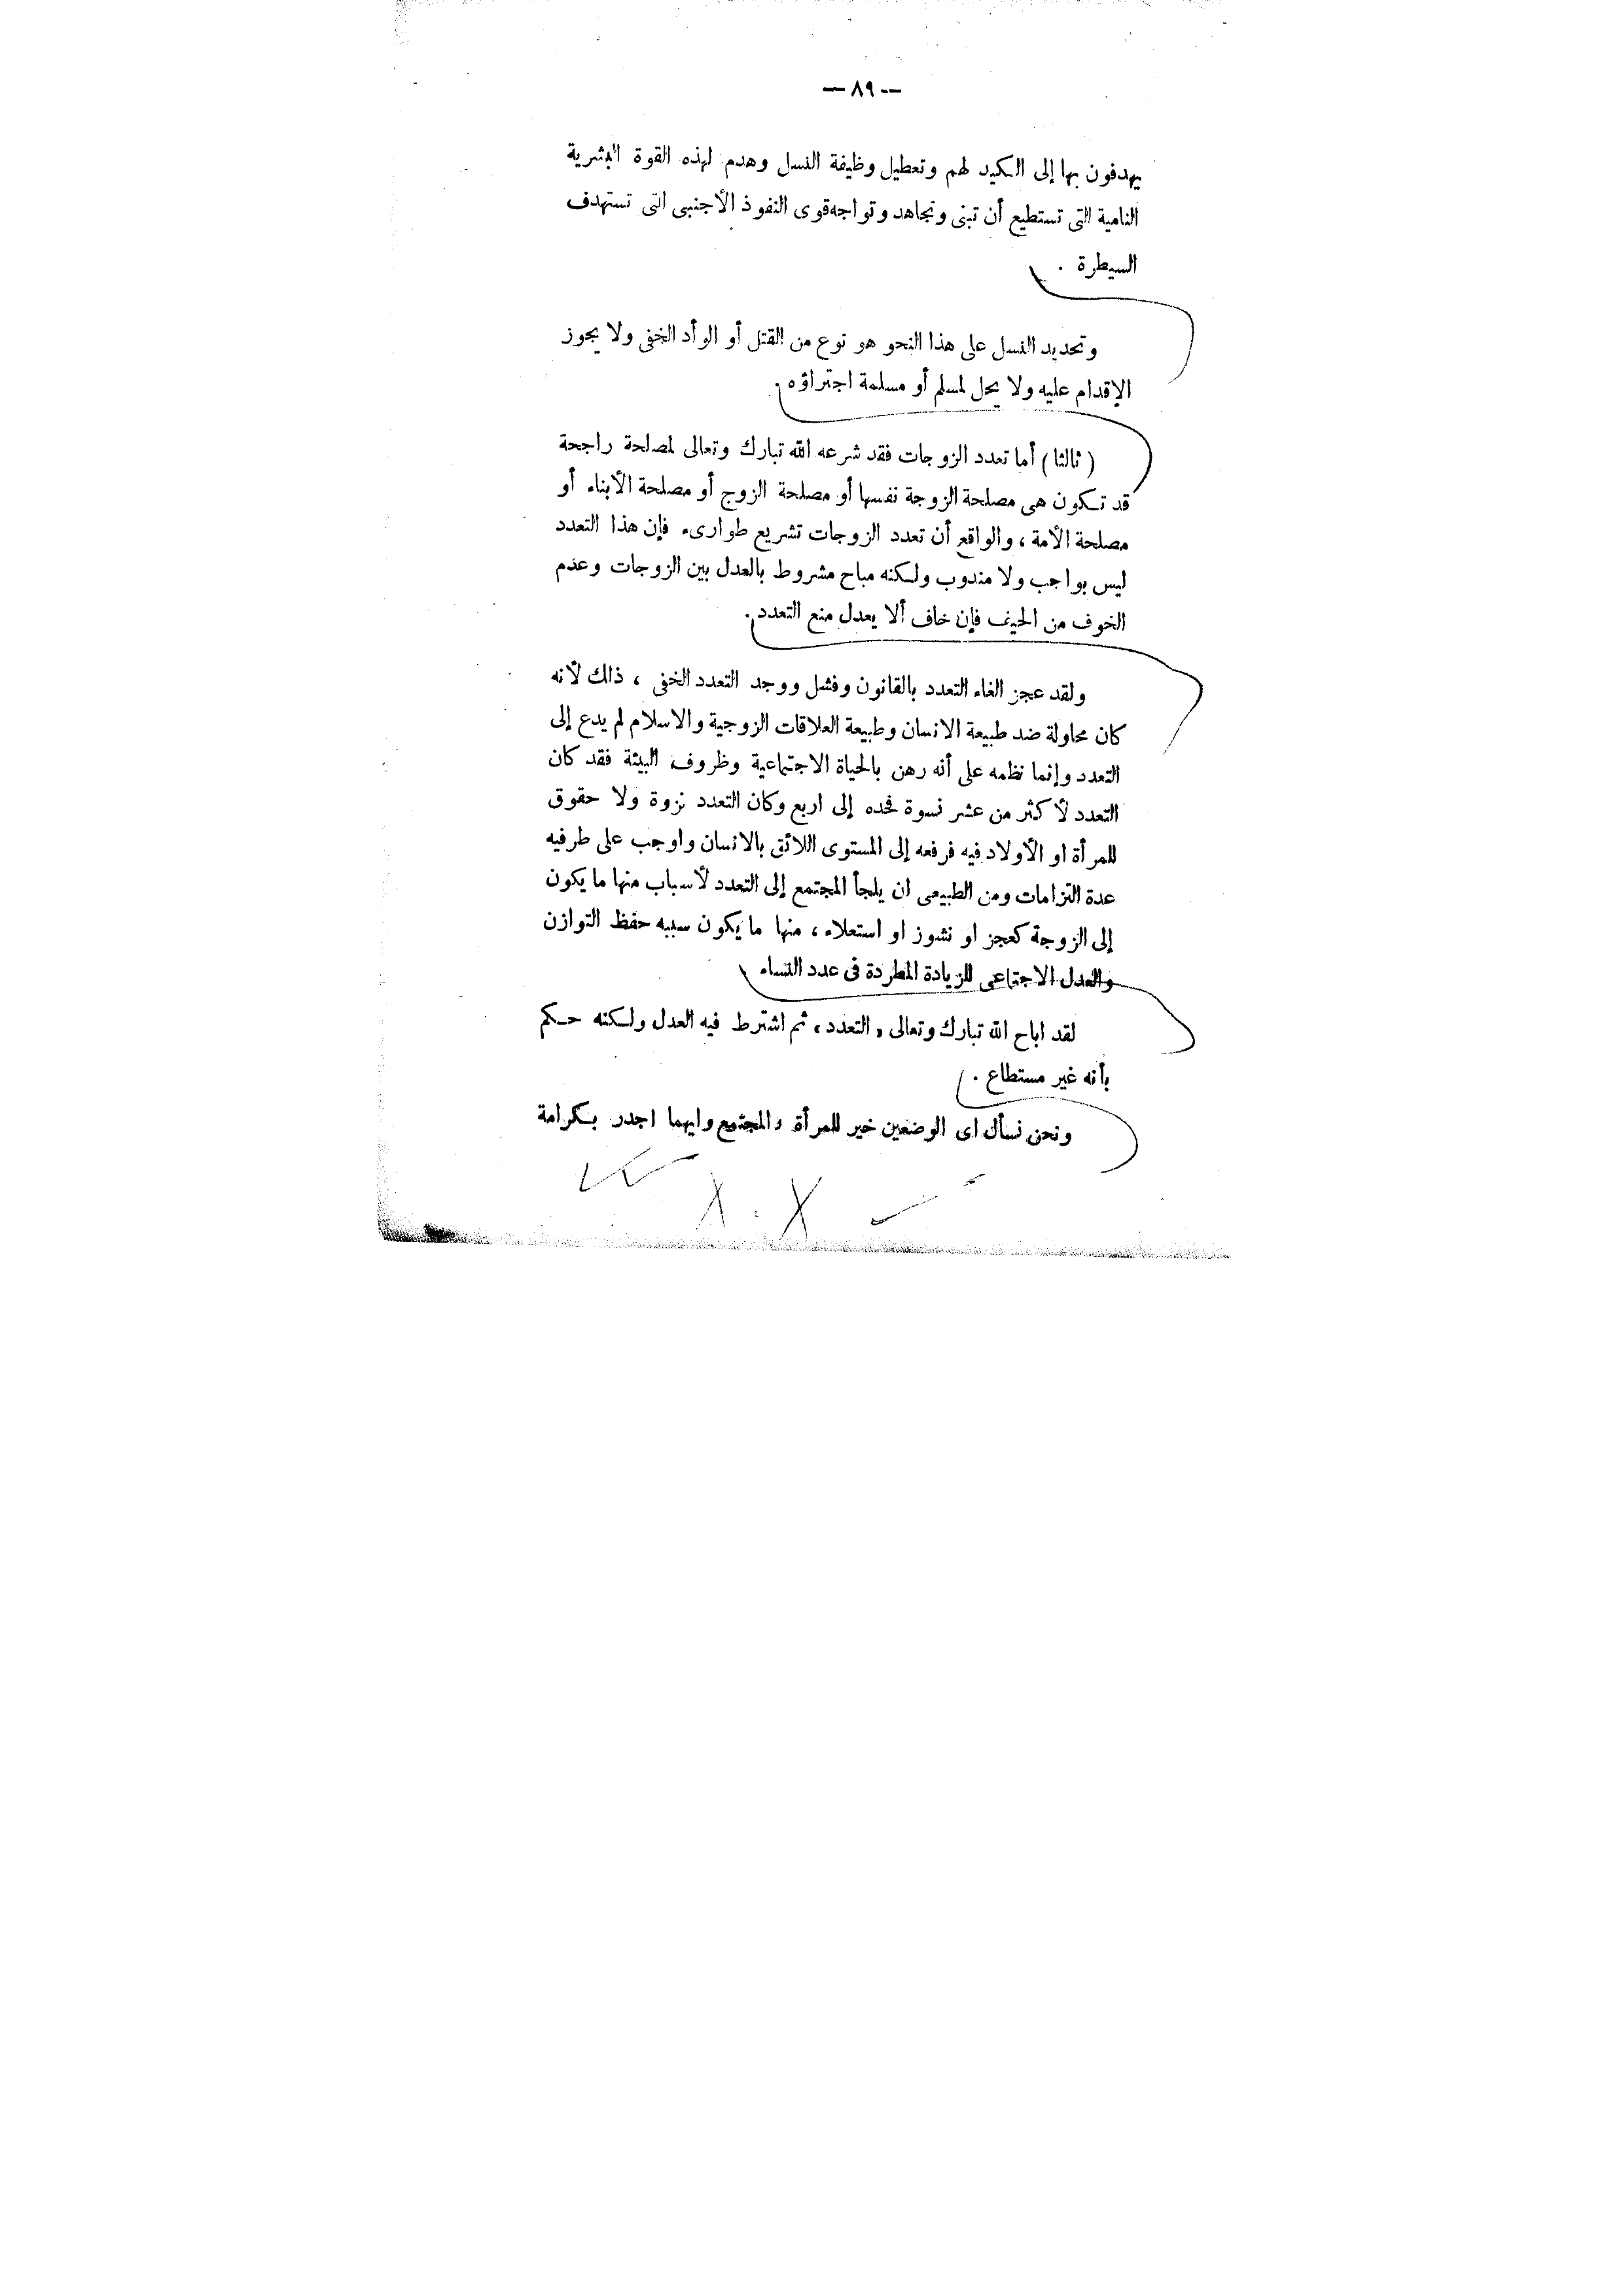 — ٨٩ —
يهدفون بها إلى الكيد لهم وتعطيل وظيفة النسل وهدم لهذه القوة البشرية
النامية التى تستطيع أن تبنى وتجاهد وتواجه قوى النفوذ الأجنبى التى تستهدف
السيطرة .
وتحديد النسل على هذا النحو هو نوع من القتل أو الوأد الخفى ولا يجوز
الإقدام عليه ولا يحل لمسلم أو مسلمة اجتراؤه .
( ثالثا ) أما تعدد الزوجات فقد شرعه الله تبارك وتعالى لمصلحة راجحة
قد تكون هى مصلحة الزوجة نفسها أو مصلحة الزوج أو مصلحة الأبناء أو
مصلحة الأمة ، والواقع أن تعدد الزوجات تشريع طوارىء فإن هذا التعدد
ليس بواجب ولا مندوب ولكنه مباح مشروط بالعدل بين الزوجات وعدم
الخوف من الحيف فإن خاف ألا يعدل منع التعدد .
ولقد عجز الغاء التعدد بالقانون وفشل ووجد التعدد الخفى ، ذلك لأنه
كان محاولة ضد طبيعة الانسان وطبيعة العلاقات الزوجية والاسلام لم يدع إلى
التعدد وإنما نظمه على أنه رهن بالحياة الاجتماعية وظروف البيئة فقد كان
التعدد لأكثر من عشر نسوة فحده إلى اربع وكان التعدد نزوة ولا حقوق
للمرأة او الأولاد فيه فرفعه إلى المستوى اللائق بالانسان واوجب على طرفيه
عدة التزامات ومن الطبيعى ان يلجأ المجتمع إلى التعدد لأسباب منها ما يكون
إلى الزوجة كعجز او نشوز او استعلاء ، منها ما يكون سببه حفظ التوازن
والعدل الاجتماعى للزيادة المطردة فى عدد النساء
لقد اباح الله تبارك وتعالى « التعدد » ثم اشترط فيه العدل ولكنه حكم
بأنه غير مستطاع .
ونحن نسأل اى الوضعين خير للمرأة والمجتمع وايهما اجدر بكرامة